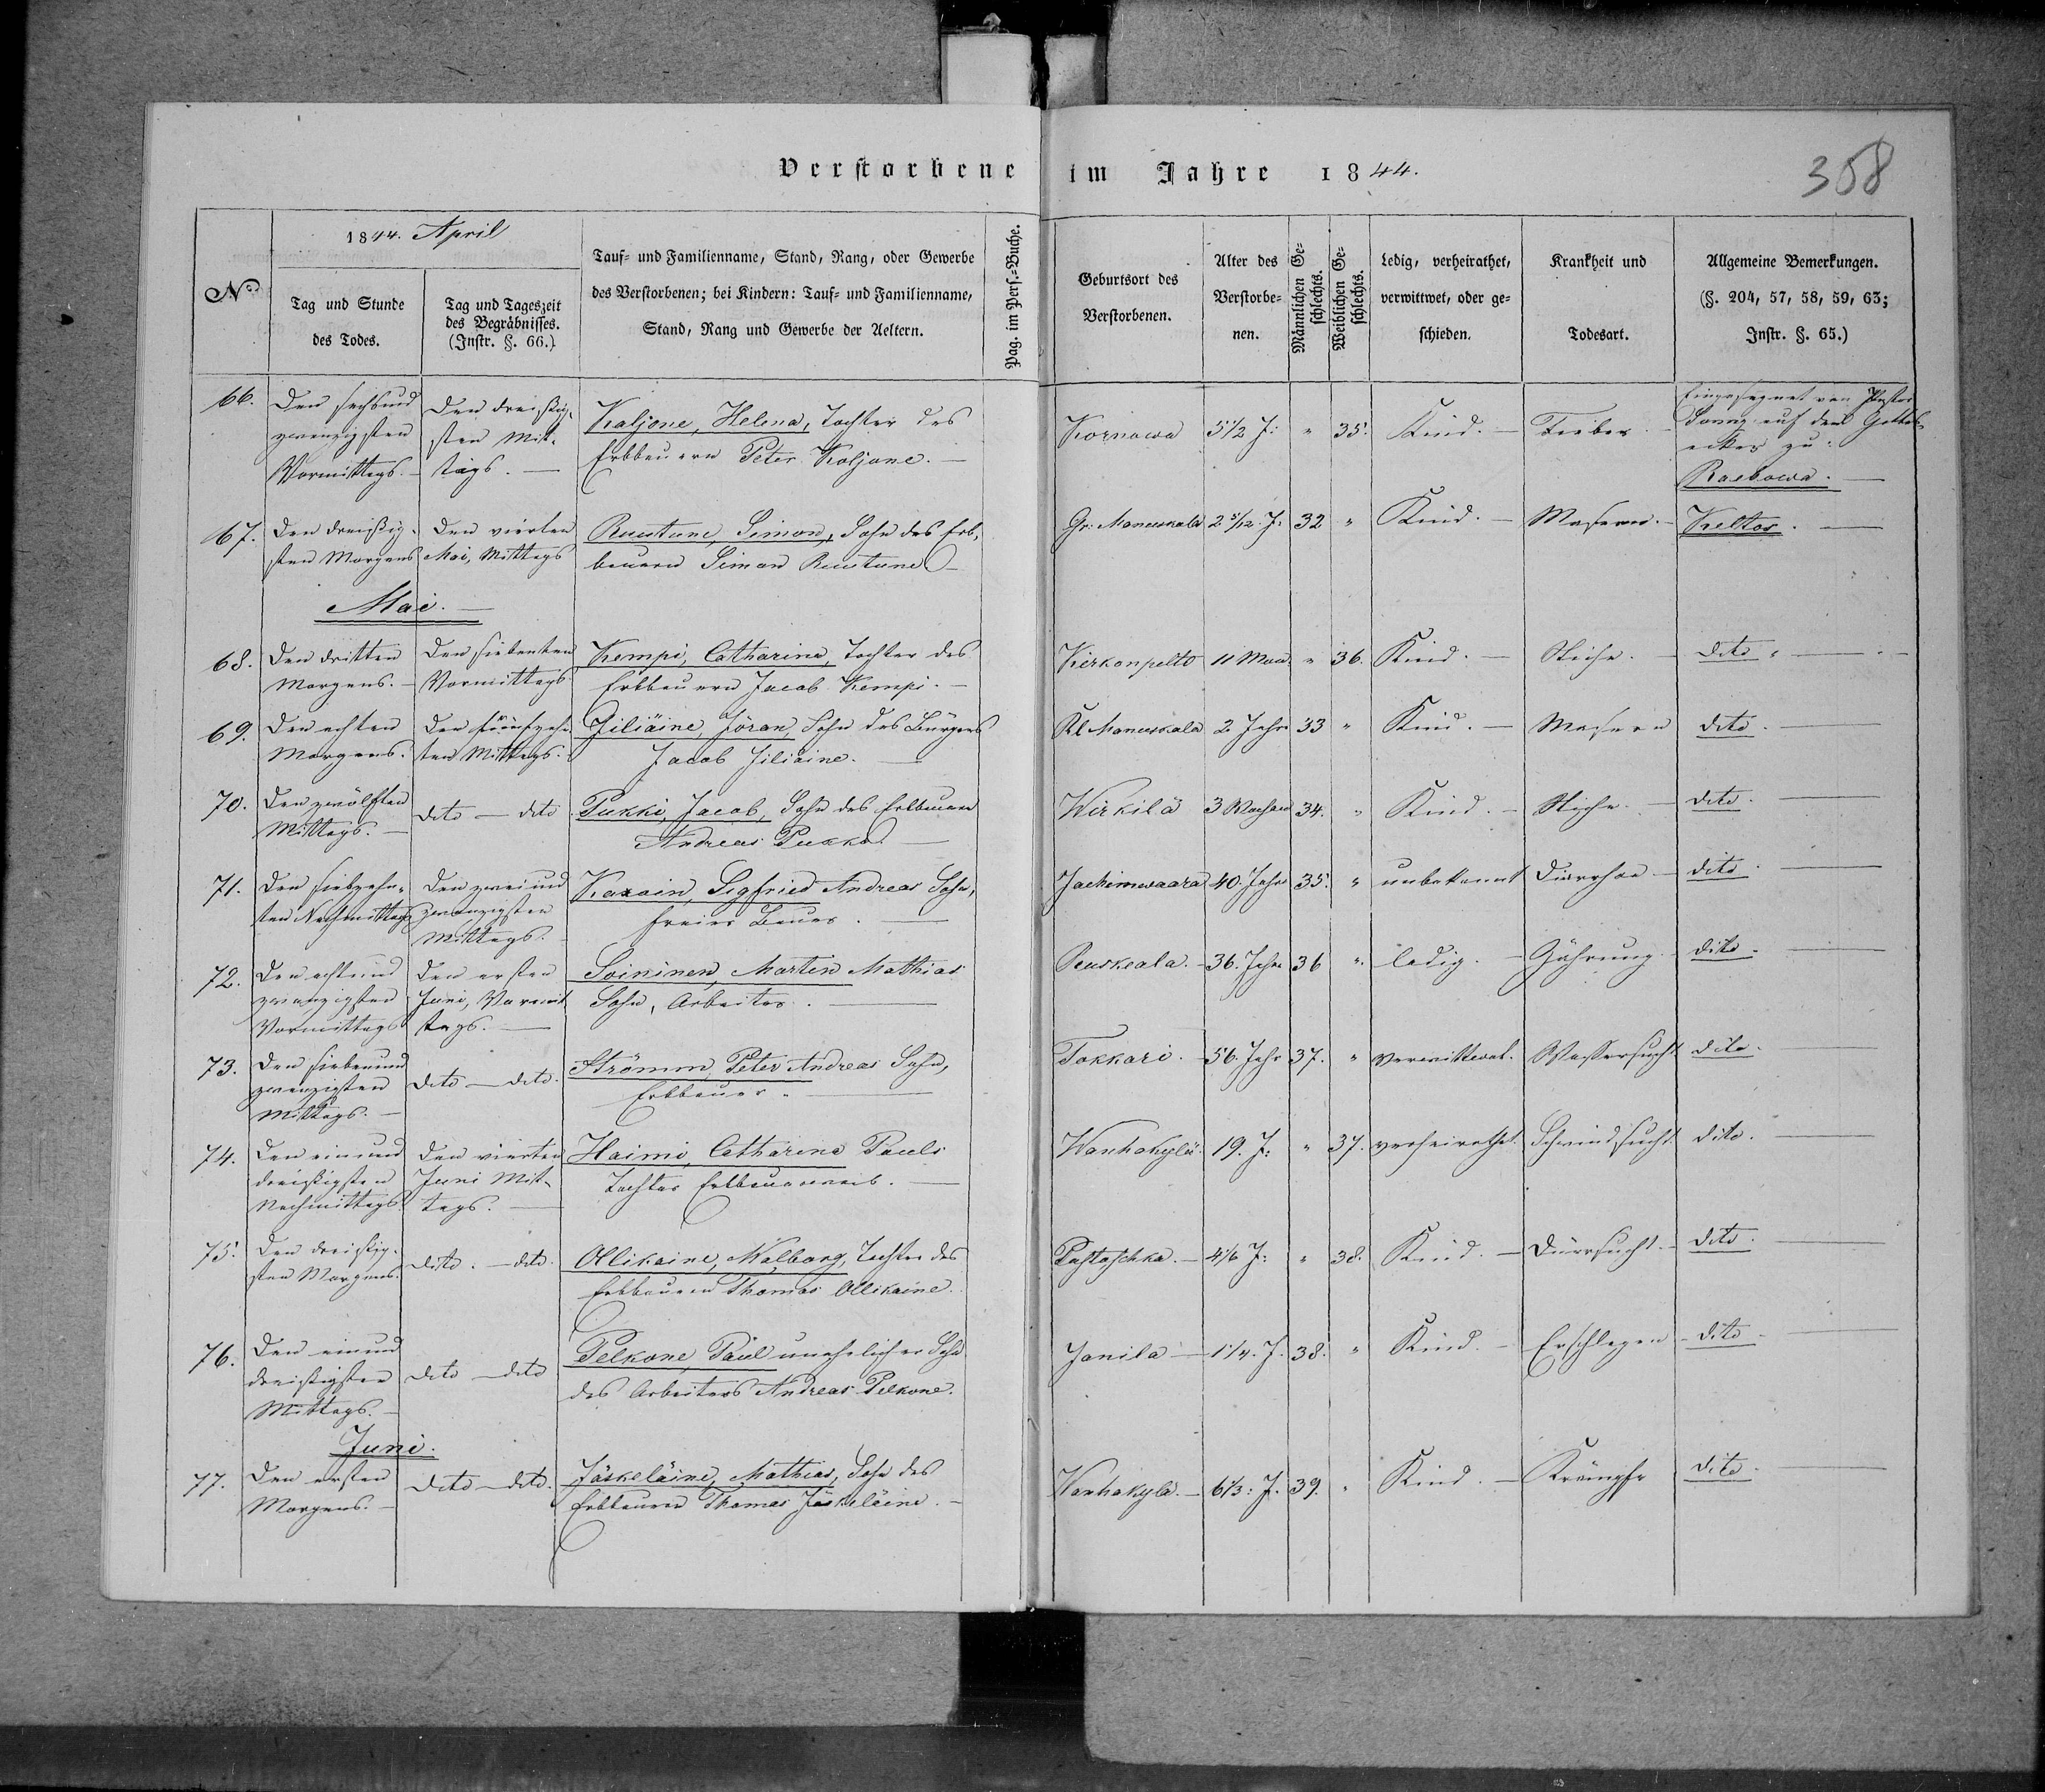 Verstorbene im Jahre 1844.
358
No
1844. April
Tag und Stunde
des Todes.
Tag und Tageszeit
des Begräbnisses.
(Instr. §. 66.)
Tauf- und Familienname, Stand, Rang, oder Gewerbe
des Verstorbenen; bei Kindern: Tauf- und Familienname,
Stand, Rang und Gewerbe der Aeltern.
Pag. im Pers.-Buche.
Geburtsort des
Verstorbenen.
Alter des
Verstorbe-
nen.
Männlichen Ge-
schlechts.
Weiblichen Ge-
schlechts.
Ledig, verheirathet,
verwittwet, oder ge-
schieden.
Krankheit und
Todesart.
Allgemeine Bemerkungen.
(§. 204, 57, 58, 59, 63;
Instr. §. 65.)
66.
Den sechsund
zwanzigsten
Vormittags.
Den dreißig-
sten Mit-
tags.
Koljone, Helena, Tochter des
Erbbauern Peter Koljone.
Kornowa
5 1/2 J:
" 35.
Kind.
Fieber.
Eingesegnet von Pastor
auf dem Gottes-
acker zu:
67.
Den dreißig-
sten Morgens
Den vierten
Mai, Mittags
Ruutune, Simon, Sohn des Erb-
bauern Simon Ruutune
Gr. Manuskala
2 5/12 J:
32 "
Kind.
Masern.
Keltos.
Mai.
68.
Den dritten
Morgens.
Den siebenten
Vormittags
Kempi, Catharina, Tochter des
Erbbauern Jacob Kempi.
Kirkonpelto
11 Mon.
" 36.
Kind.
dito
69.
Den achten
Morgens.
Den fünfzehn-
ten Mittags.
Jiliäine, Jöran, Sohn des Bürgers
Jacob Jiliäine.
Kl Manuskala
2 Jahr
33 "
Kind.
Masern
dito.
70.
Den zwölften
Mittags.
dito — dito
Pukki, Jacob, Sohn des Erbbauern
Andreas Pukki
Wirkilä
3 Wochen
34. "
Kind.
dito.
71.
Den siebzehn-
ten Nachmittags
Den zweiund
zwanzigsten
Mittags.
Sigfried Andreas Sohn,
freier Bauer.
Jachimwaara
40. Jahr
35. "
unbekannt
Diarrhoe
dito.
72.
Den achtund
zwanzigsten
Vormittags
Den ersten
Juni, Vormit
tags.
Soininen, Morten Mathias
Sohn, Arbeiter.
Ruskeala.
36. Jahr
36 "
ledig.
dito.
73.
Den siebenund
zwanzigsten
Mittags.
dito — dito.
Strömm, Peter Andreas Sohn,
Erbbauer.
Tokkari.
56. Jahr
37. "
verwittwet.
Wassersucht
dito.
74.
Den einund
dreißigsten
Nachmittags
Den vierten
Juni Mit-
tags.
Haimi, Catharina Pauls
Tochter
Wanhakylä
19. J:
" 37.
verheirathet.
Schwindsucht
dito.
75.
Den dreißig-
sten Morgens.
dito. — dito.
Ollikaine, Walborg, Tochter des
Erbbauern Thomas Ollikaine.
4 1/6 J:
" 38.
Kind.
Dürrsucht.
dito.
76.
Den einund
dreißigsten
Mittags.
dito — dito
Pelkone, Paul unehelicher Sohn
des Arbeiters Andreas Pelkone.
Janila
1 1/4. J.
38. "
Kind.
Erschlagen
dito
Juni.
77.
Den ersten
Morgens.
dito — dito.
Jäskeläine, Mathias, Sohn des
Erbbauern Thomas Jäskeläine.
Wanhakylä.
6 1/3: J.
39. "
Kind.
Krämpfe
dito.